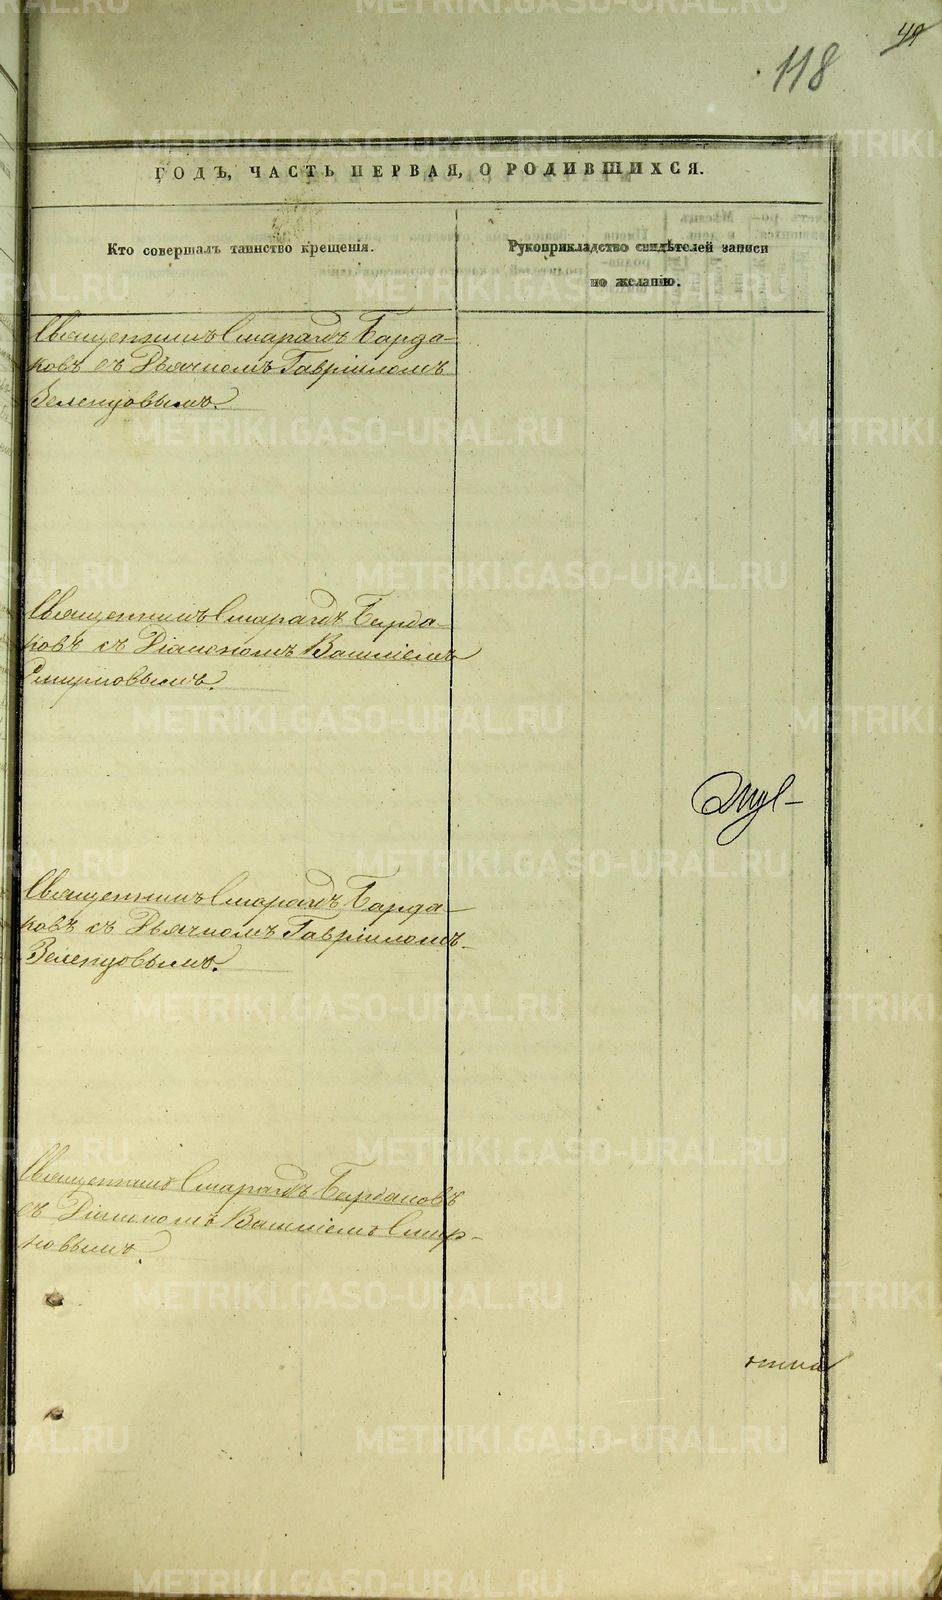 49
118
ГОДЪ, ЧАСТЬ ПЕРВАЯ, О РОДИВШИХСЯ.
Кто совершалъ таинство крещенія.
Рукоприкладство свидѣтелей записи
по желанію.
Священникъ Смарагдъ Барда-
ковъ съ Дьячкомъ Гавріиломъ
Зеленцовымъ.
Священникъ Смарагдъ Барда-
ковъ съ Діакономъ Василіемъ
Смирновымъ.
Священникъ Смарагдъ Барда-
ковъ съ Дьячкомъ Гавріиломъ
Зеленцовымъ.
Священникъ Смарагдъ Бардаковъ
съ Діакономъ Василіемъ Смир-
новымъ.
METRIKI.GASO-URAL.RU